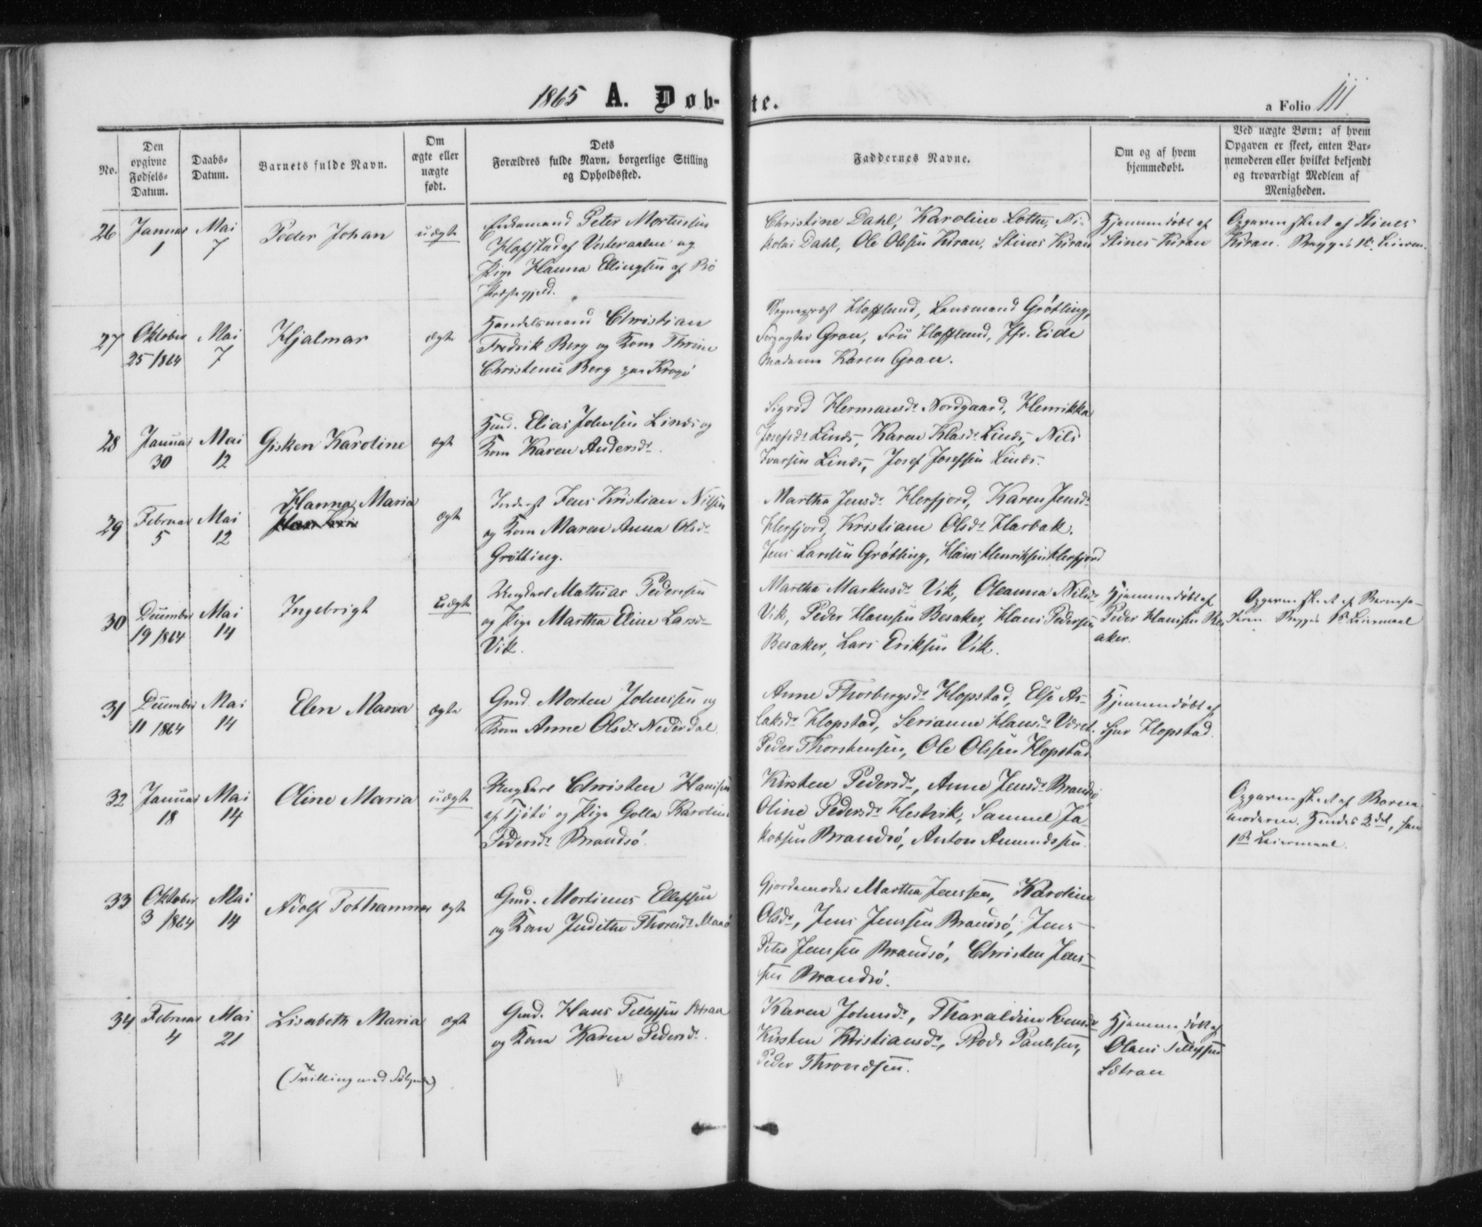 1865 A. Døb-
te.
a Folio 111
No.
Den opgivne Fødsels-Datum.
Daabs-Datum.
Barnets fulde Navn.
Om ægte eller uægte født.
Dets Forældres fulde Navn, borgerlige Stilling og Opholdssted.
Faddernes Navne.
Om og af hvem hjemmedøbt.
Ved uægte Børn: af hvem Opgaven er skeet, enten Bar-nemoderen eller hvilket bekjendt og troværdigt Medlem af Menigheden.
26
Januar 1
Mai 7
Peder Johan
uægte
Peter Mortensen
af Vesteraalen og
Pige Hanna Ellingsen af Bø
Præstegjeld.
Christine Dahl, Karoline Lotte, Ni-
kolai Dahl, Ole Olsen Kiran, Stines Kiran
Hjemmedøbt af
Stines Kiran
Opgaven skeet af Stines
Kiran. Begges 1ste Leierm.
27
Oktober 25 1864
Mai 7
Hjalmar
ægte
Handelsmand Christian
Fredrik Berg og Kone Thrine
Christense Berg paa Krogø
Sogneprest Hofflund, Lensmand Grøtting,
Forpagter Gran, Fru Hofflund, Jfr. Eide
Madame Karen Gran.
28
Januar 30
Mai 12
Gisken Karoline
ægte
Hmd. Elias Johnsen Linds og
Kone Karen Andersdr.
Sigrid Hermansdr Nordgaard, Henrikka
Josefsdr Linds, Karen Klasdr Linds, Nils
Ivarsen Linds, Josef Josefsen Linds.
29
Februar 5
Mai 12
Hanna Maria
ægte
Inderst Jens Kristian Nilsen
og Kone Maren Anna Olsdr
Grøtting.
Martha Jensdr Herfjord, Karen Jensdr
Herfjord, Kristiane Olsdr Harbak.
Jens Larsen Grøtting, Hans Henriksen Herfjord
30
December 19 1864
Mai 14
Ingebrigt
uægte
Ungkarl Mathias Pedersen
og Pige Martha Eline Larsdr
Vik.
Martha Markusdr Vik, Oleanna Nilsdr
Vik, Peder Hansen Besaker, Hans Pedersen
Besaker, Lars Eriksen Vik.
Hjemmedøbt af
Peder Hansen Bes-
aker.
Opgaven skeet af Barnefa-
deren. Begges 1ste Leiermaal
31
December 11 1864
Mai 14
Elen Maria
ægte
Gmd. Morten Johnsen og
Kone Anne Olsdr Nederdal
Anne Thorbergsdr Hopstad, Else As-
laksdr Hopstad, Serianna Hansdr
Peder Thorstensen, Ole Olsen Hopstad
Hjemmedøbt af
Hopstad.
32
Januar 18
Mai 14
Oline Maria
uægte
Ungkarl Christen Hansen
af Tjøtø og Pige Golla Karoline
Pedersdr Brandsø.
Kirsten Pedersdr, Anne Jensdr Brandsø
Oline Pedersdr Hestvik, Samuel Ja-
kobsen Brandsø, Anton Amundsen
Opgaven skeet af Barne-
moderen. Hendes 2det, hans
1ste Leiermaal.
33
Oktober 3 1864
Mai 14
Adolf Tothammer
ægte
Gmd. Mortinus Ellefsen
og Kone Judithe Thoresdr
Gjordemoder Martha Jenssen, Karoline
Olsdr, Jens Jenssen Brandsø, Jens
Peter Jenssen Brandsø, Christen Jens-
sen Brandsø.
34
Februar 4
Mai 21
Lisabeth Maria
(Tvilling med Følgende)
ægte
Gmd. Hans Tellefsen
og Kone Karen Pedersdr.
Karen Johnsdr, Tharaldine
Kirsten Kristiansdr, Paulsen,
Peder Throndsen.
Hjemmedøbt af
Olaus Tellefsen